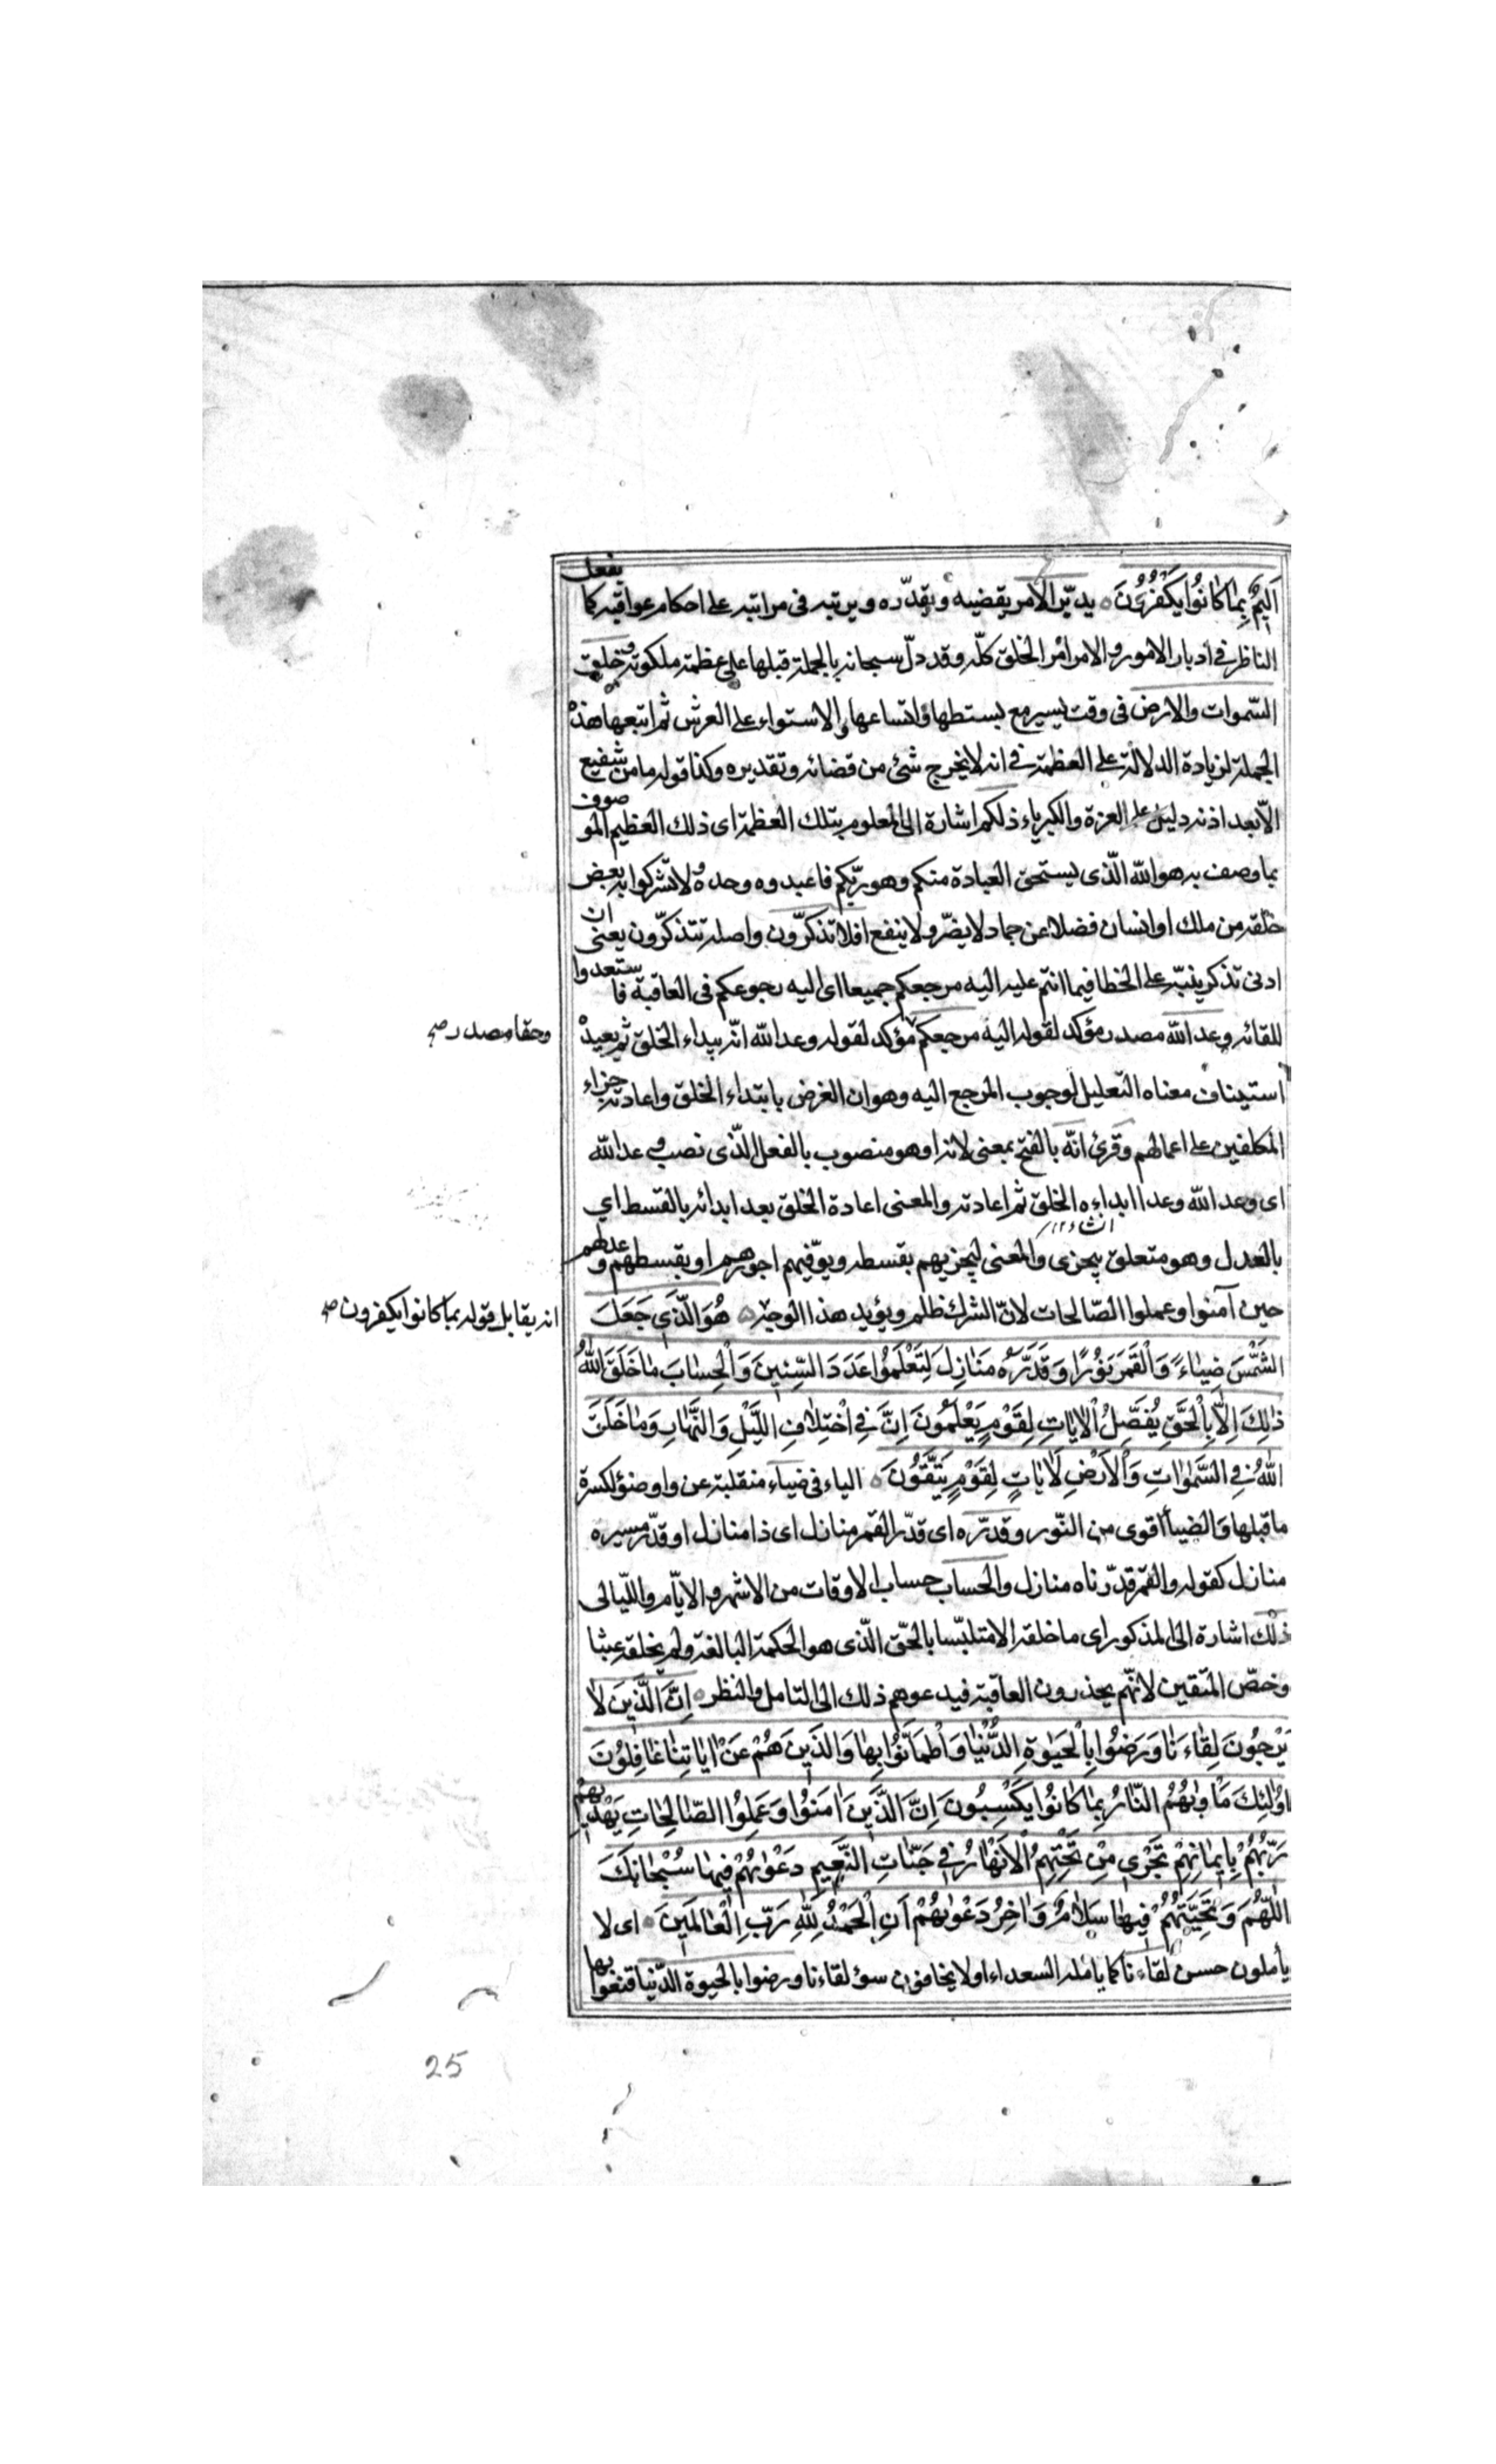 اَلِيمٌ بِمَا كَانُوا يَكْفُرُونَ يدبّر الامر يقضيه ويقدّره ويرتبه فى مراتبه على احكام عواقبه كما يفعل
الناظر فى ادبار الامور والامر امر الخلق كلّه وقد دلّ سبحانه بالجملة قبلها على عظمته وملكوته خلق
السّموات والارض فى وقت يسير مع بسطتها واتساعها والاستواء على العرش ثم اتبعها هذه
الجملة لزيادة الدلالة على العظمة فى انه لا يخرج شئ من قضائه وتقديره وكذا قوله ما من شفيع
الّا بعد اذنه دليل على العزة والكبرياء ذلكم اشارة الى المعلوم بتلك العظمة اى ذلك العظيم الموصوف
بما وصف به هو الله الّذى يستحق العبادة منكم وهو ربّكم فاعبدوه وحده ولا تشركوا به بعض
خلقه من ملك او انسان فضلا عن جماد لا يضرّ ولا ينفع افلا تذكّرون واصله تتذكّرون يعنى ان
ادنى تذكر ينبّه على الخطا فيما انتم عليه اليه مرجعكم جميعا اى اليه رجوعكم فى العاقبة فاستعدوا
للقائه وعد الله مصدر مؤكد لقوله اليه مرجعكم مؤكد لقوله وعد الله انّه يبداء الخلق ثم يعيده
وحقا مصدر صح
استيناف معناه التعليل لوجوب المرجع اليه وهو ان الغرض بابتداء الخلق واعادته جزاء
المكلفين على اعمالهم وقرئ انّه بالفتح بمعنى لانه او هو منصوب بالفعل الّذى نصب وعد الله
اى وعد الله وعدا ابداءه الخلق ثم اعادته والمعنى اعادة الخلق بعد ابدائه بالقسط اي
بالعدل وهو متعلق بيجزى والمعنى ليجزيهم بقسطه ويوفّيهم اجورهم او بقسطهم وعدلهم
حين آمنوا وعملوا الصّالحات لانّ الشرك ظلم ويؤيد هذا الوجه هُوَ الَّذِي جَعَلَ
انه يقابل قوله بما كانوا يكفرون صح
الشَّمْسَ ضِيَاءً وَالْقَمَرَ نُورًا وَقَدَّرَهُ مَنَازِلَ لِتَعْلَمُوا عَدَدَ السِّنِينَ وَالْحِسَابَ مَا خَلَقَ اللهُ
ذٰلِكَ اِلَّا بِالْحَقِّ يُفَصِّلُ الْاٰيَاتِ لِقَوْمٍ يَعْلَمُونَ اِنَّ فِى اخْتِلَافِ اللَّيْلِ وَالنَّهَارِ وَمَا خَلَقَ
اللهُ فِى السَّمٰوَاتِ وَالْاَرْضِ لَاٰيَاتٍ لِقَوْمٍ يَتَّقُونَ الياء فى ضياء منقلبة عن واو ضوء لكسرة
ما قبلها والضياء اقوى من النّور وقدّره اى قدّر القمر منازل اى ذا منازل او قدّر مسيره
منازل كقوله والقمر قدّرناه منازل والحساب حساب الاوقات من الاشهر والايّام واللّيالى
ذلك اشارة الى المذكور اى ما خلقه الا متلبّسا بالحّق الّذى هو الحكمة البالغة ولم يخلقه عبثا
وخصّ المتقين لانّهم يحذرون العاقبة فيدعوهم ذلك الى التامل والنظر اِنَّ الَّذِينَ لَا
يَرْجُونَ لِقَاءَنَا وَرَضُوا بِالْحَيٰوةِ الدُّنْيَا وَاطْمَاَنُّوا بِهَا وَالَّذِينَ هُمْ عَنْ اٰيَاتِنَا غَافِلُونَ
اُولٰئِكَ مَاْوٰيهُمُ النَّارُ بِمَا كَانُوا يَكْسِبُونَ اِنَّ الَّذِينَ اٰمَنُوا وَعَمِلُوا الصَّالِحَاتِ يَهْدِيهِمْ
رَبُّهُمْ بِاِيمَانِهِمْ تَجْرِى مِنْ تَحْتِهِمُ الْاَنْهَارُ فِى جَنَّاتِ النَّعِيمِ دَعْوٰيهُمْ فِيهَا سُبْحَانَكَ
اللّٰهُمَّ وَتَحِيَّتُهُمْ فِيهَا سَلَامٌ وَاٰخِرُ دَعْوٰيهُمْ اَنِ الْحَمْدُ لِلّٰهِ رَبِّ الْعَالَمِينَ اى لا
يأملون حسن لقاءنا كما يامله السعداء او لا يخافون سوء لقاءنا ورضوا بالحيوة الدّنيا قنعوا بها
25